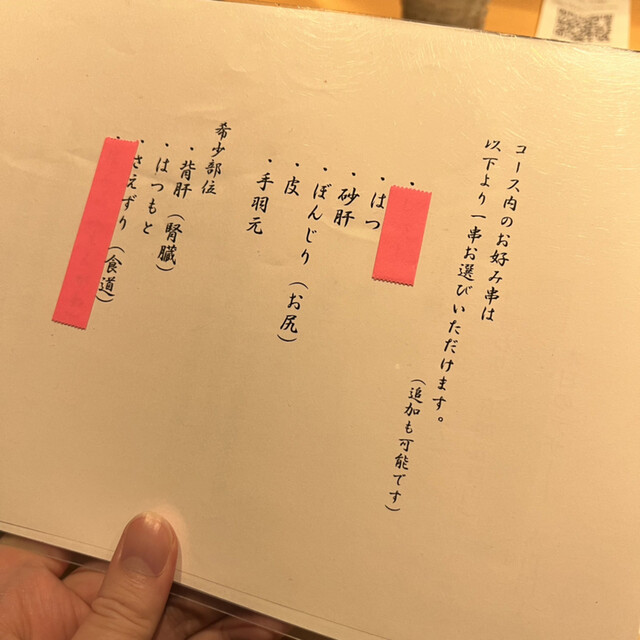 コース内のお好み串は
以下より一串お選びいただけます。
(追加も可能です)
・
・はつ
・砂肝
・ぼんじり(お尻)
・皮
・手羽元
希少部位
・背肝(腎臓)
・はつもと
・さえずり(食道)
・